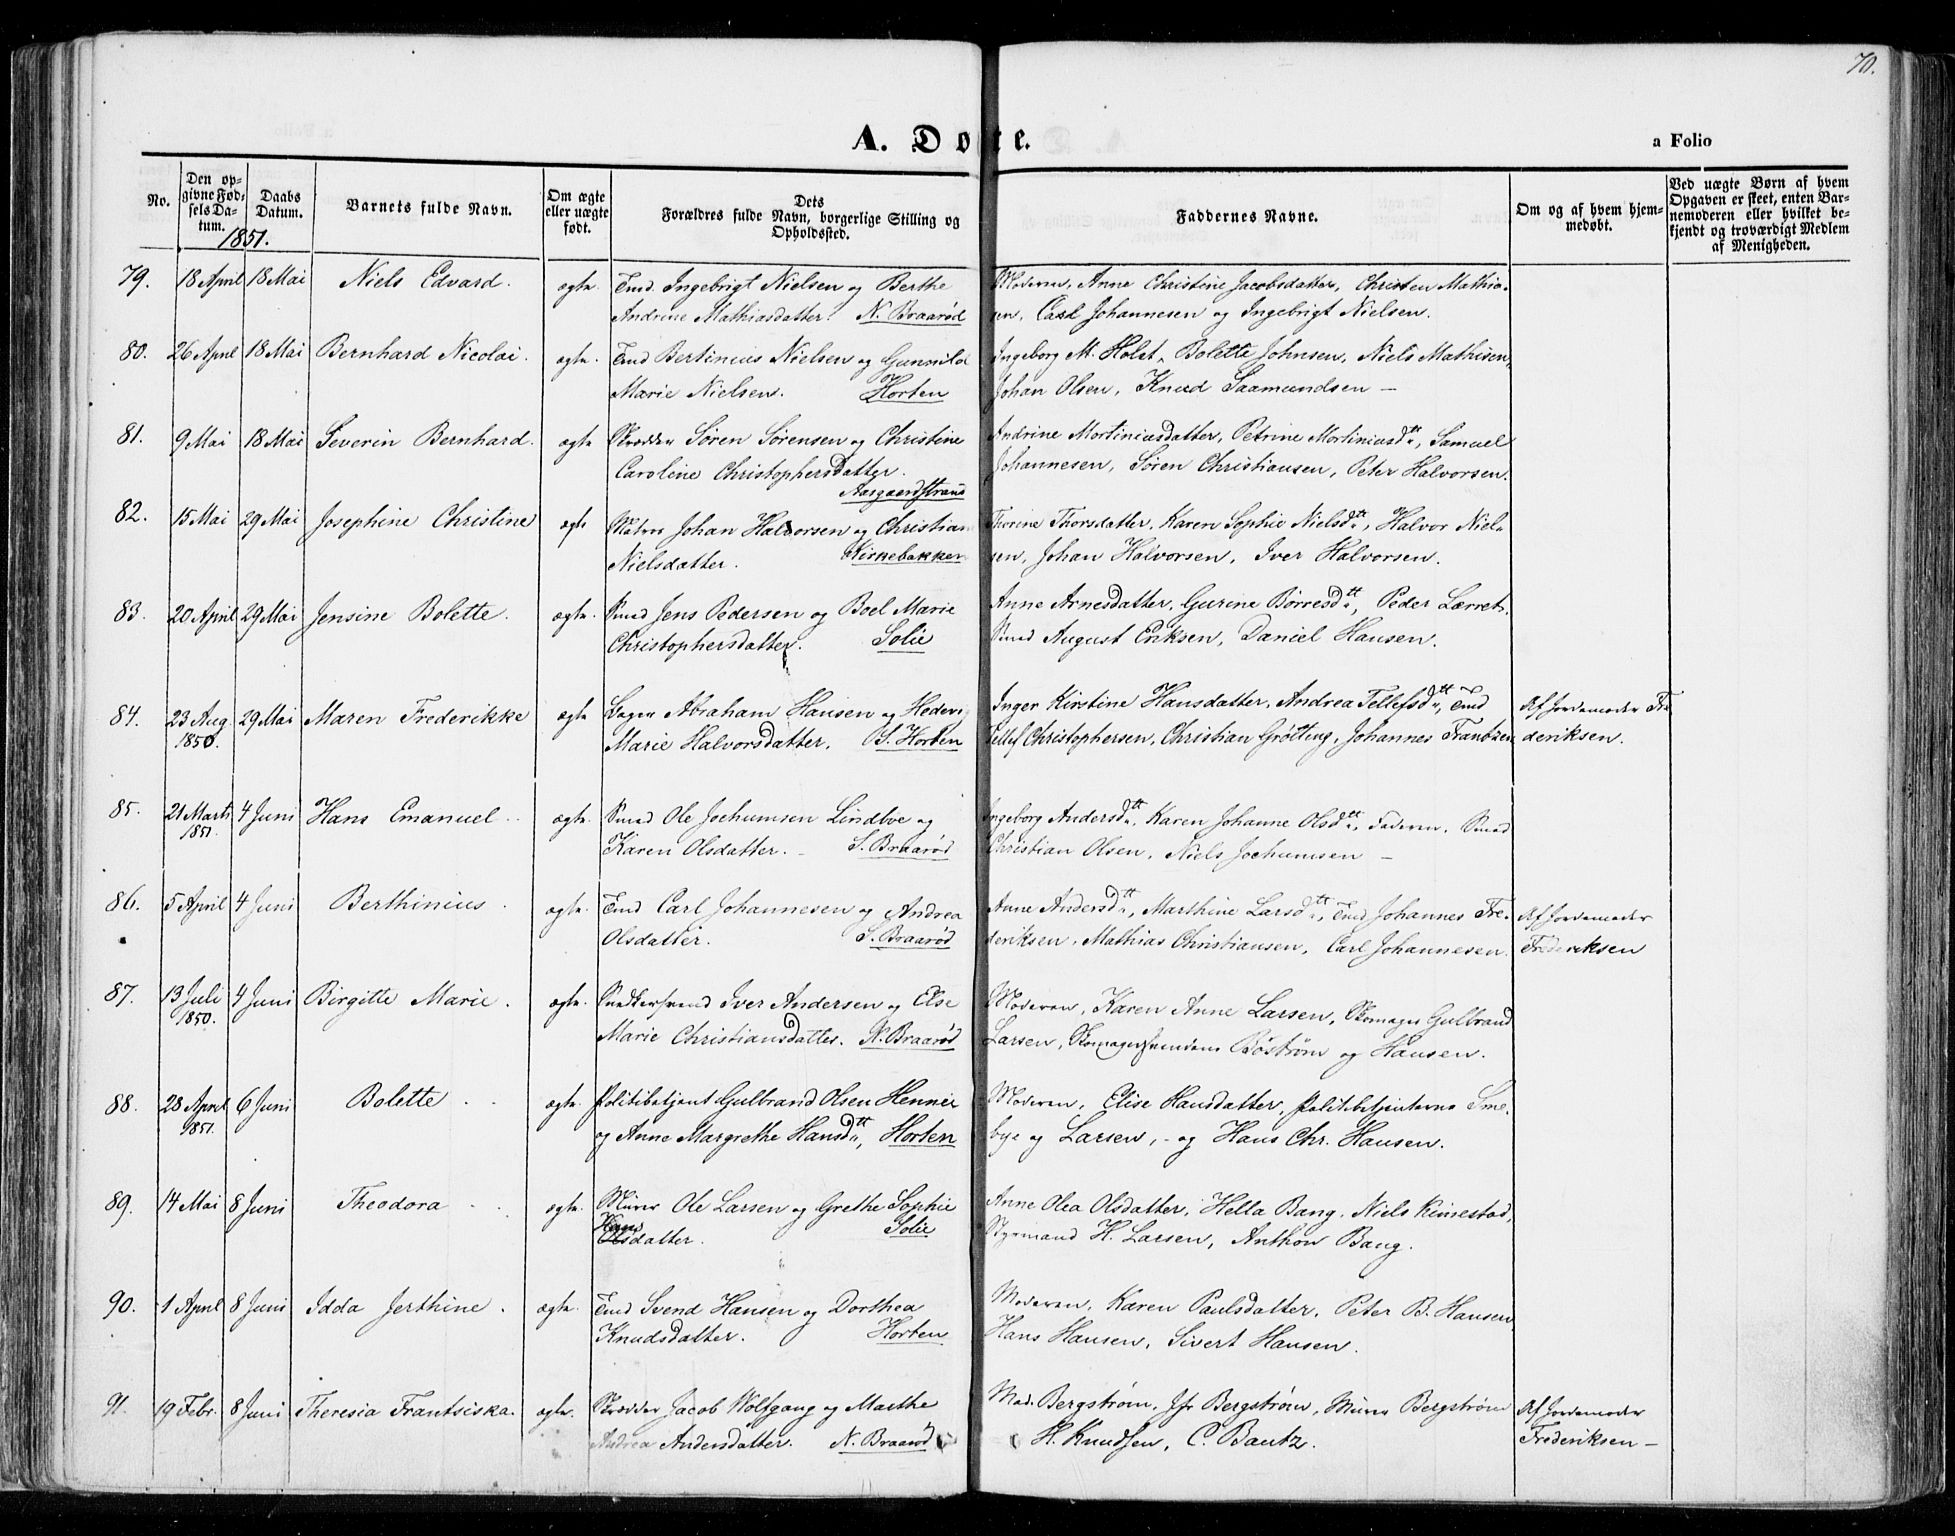 70.
A. Døpte.
a Folio
No.
Den opgivne Fødsels Datum.
Daabs Datum.
Barnets fulde Navn.
Om ægte eller uægte født.
Dets Forældres fulde Navn, borgerlige Stilling og Opholdssted.
Faddernes Navne.
Om og af hvem hjemmedøbt.
Ved uægte Børn af hvem Opgaven er skeet, enten Barnemoderen eller hvilket bekjendt og troværdigt Medlem af Menigheden.
1851.
79. 18 April 18 Mai Niels Edvard. ægte Tmd. Ingebrigt Nielsen og Berthe Moderen, Anne Christine Jacobsdatter, Christen Mathia-
Andrine Mathiasdatter. N. Braarød sen, Carl Johannesen og Ingebrigt Nielsen.
80. 26 April 18 Mai Bernhard Nicolai. ægte. Tmd Bertinius Nielsen og Gunnild Ingeborg M. Holst, Bolette Johnsen, Niels Mathisen,
Marie Nielsen. Horten Johan Olsen, Knud Saamundsen —
81. 9 Mai 18 Mai Severin Bernhard. ægte Skrædder Søren Sørensen og Christine Andrine Mortiniusdatter, Petrine Mortiniusdtt, Samuel
Caroline Christophersdatter. Johannesen, Søren Christiansen, Peter Halvorsen.
Aasgaardstrand
82. 15 Mai 29 Mai Josephine Christine ægte Matros Johan Halvorsen og Christian Thorine Thorsdatter, Karen Sophie Nielsdtt, Halvor Niel-
Nielsdatter. Kirkebakken sen, Johan Halvorsen, Iver Halvorsen.
83. 20 April 29 Mai Jensine Bolette. ægte. Smed Jens Pedersen og Boel Marie Anne Arnesdatter, Gurine Børresdtt, Peder Lerret,
Christophersdatter. Solie Smed August Eriksen, Daniel Hansen.
84. 23 Aug. 29 Mai Maren Frederikke ægte Bager Abraham Hansen og Hedevig Inger Kirstine Hansdatter, Andrea Tellefsdtt, Tmd Af Jordemoder Fre
1850. Marie Halvorsdatter. S. Horten Tellef Christophersen, Christian Grøtting, Johannes Frantzen deriksen.
85. 21 Marts 4 Juni Hans Emanuel ægte. Smed Ole Jochumsen Lindboe og Ingeborg Andersdtt, Karen Johanne Olsdtt, Faderen, Smed
1851. Karen Olsdatter. – S. Braarød Christian Olsen, Niels Jochumsen —
86. 5 April 4 Juni Berthinius. ægte. Tmd Carl Johannesen og Andrea Anne Andersdtt, Marthine Larsdtt, Tmd Johannes Fre- Af Jordemoder
Olsdatter. S. Braarød deriksen, Mathias Christiansen, Carl Johannesen. Frederiksen
87. 13 Juli 4 Juni Birgitte Marie. ægte. Snedkersvend Iver Andersen og Else Moderen, Karen Anne Larsen, Skomager Gulbrand
1850. Marie Christiansdatter. N. Braarød Larsen, Skomagersvendene Bøstrøm og Hansen.
88. 28 April 6 Juni Bolette ægte. Politibetjent Gulbrand Olsen Hennie Moderen, Elise Hansdatter, Politibetjenterne Sme-
1851. og Anne Margrethe Hansdtt, Horten bye og Larsen, - og Hans Chr. Hansen.
89. 14 Mai 8 Juni Theodora ægte. Murer Ole Larsen og Grethe Sophie Anne Olea Olsdatter, Hella Bang, Niels Rimestad,
Hans
Olsdatter. Solie Styrmand H. Larsen, Anthon Bang.
90. 1 April 8 Juni Idda Jerthine. ægte. Tmd Svend Hansen og Dorthea Moderen, Karen Paulsdatter, Peter B. Hansen,
Knudsdatter. Horten Hans Hansen, Sivert Hansen.
91. 19 Febr. 8 Juni Theresia Frantsiska. ægte. Skrædder Jacob Wolfgang og Marthe Mad. Bergstrøm, Jfr Bergstrøm, Murer Bergstrøm Af Jordemoder
Andrea Andersdatter. N. Braarød H. Knudsen, C. Bautz. Frederiksen –